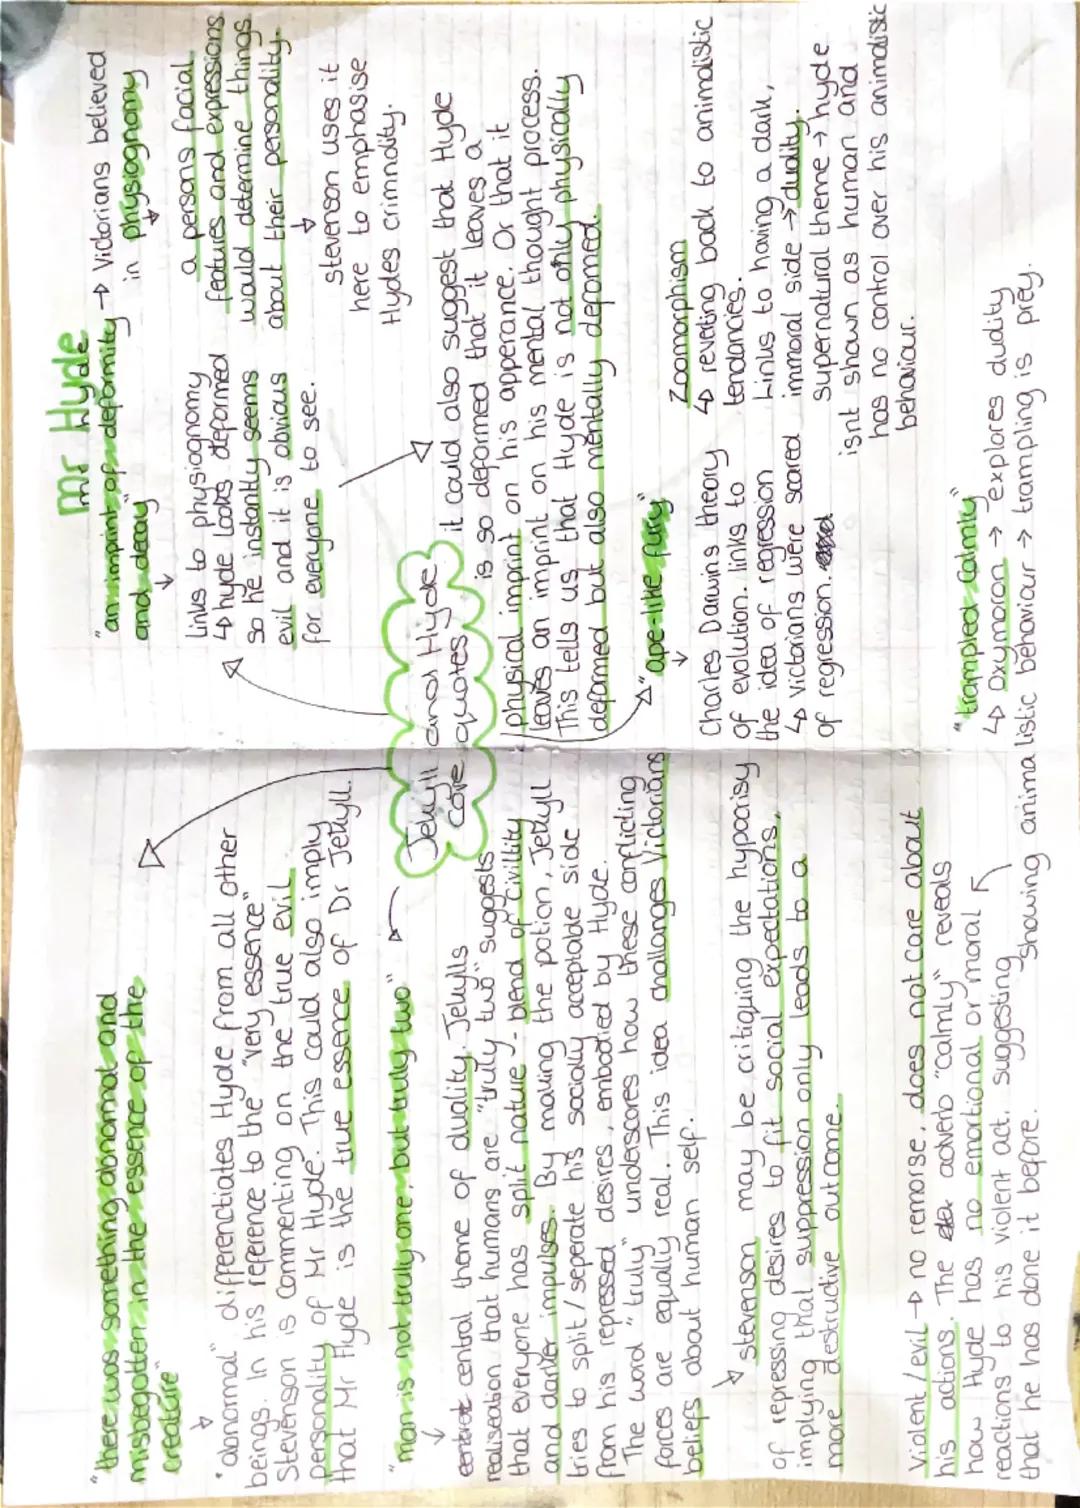 Mr Hyde
Mr Hyde
"there was something abnormal and
misbegotten in the essence of the
creature"
"abnormal", differenciates Hyde from all other
beings. In his reference to the "very essence"
Stevenson is commenting on the true evil
personality of Mr Hyde. This could also imply
that Mr Hyde is the true essence of Dr Jekyll.
"man is not truly one, but truly two"
central theme of duality. Jekylls
realiseation that humans are "truly two" suggests
that everyone has split nature - blend of civillity
and darker impulses. By making the potion, Jekyll
tries to split / seperate his socially acceptable side
from his repressed desires, embodied by Hyde.
The word "truly" undescores how these conflicting
forces are equally real. This idea challanges Victorians
beliefs about human self.
stevenson may be critiquing the hypocrisy
of repressing desires to fit social expectations,
implying that suppression only leads to a
more destructive outcome.
Violent / evil → no remorse, does not care about
his actions. The adverb "calmly" reveals
how Hyde has no emortional or moral
reactions to his violent act, suggesting
that he has done it before.
Jekyll and Hyde
core quotes
"an imprint of deformity → Victorians believed
and decay"
in physiognomy
a persons facial
features and expressions
would determine things
about their personality.
stevenson uses it
here to emphasise
Hydes crimnality.
Links to physiognomy
↳ hyde looks deformed
so he instantly seems
evil and it is obvious
for everyone to see.
it could also suggest that Hyde
is so deformed that it leaves a
physical imprint on his apperance. Or that it
leaves an imprint on his mental thought process.
This tells us that Hyde is not only physically
deformed but also mentally deformed.
"ape-like fury"
Charles Darwins theory
of evolution. links to
the idea of regression
↳ victorians were scared
of regression.
Zoomorphism
↳ reverting back to animalistic
tendancies.
Links to having a dark,
immoral side → duality.
supernatural theme → hyde
isnt shown as human and
has no control over his animalistic
behaviour.
"trampled calmly"
↳ Oxymoron → explores duality
showing animalistic behaviour → trampling is prey.